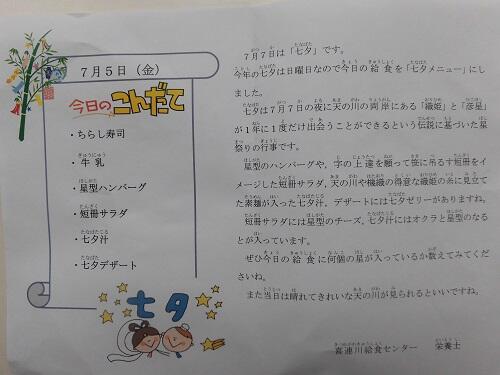 7月5日（金）
今日のこんだて
・ちらし寿司
・牛乳
・星型ハンバーグ
・短冊サラダ
・七夕汁
・七夕デザート
七夕
7月7日は「七夕」です。
今年の七夕は日曜日なので今日の給食を「七夕メニュー」にし
ました。
七夕は7月7日の夜に天の川の両岸にある「織姫」と「彦星」
が1年に1度だけ出会うことができるという伝説に基づいた星
祭りの行事です。
星型のハンバーグや，字の上達を願って笹に吊るす短冊をイ
メージした短冊サラダ，天の川や機織の得意な織姫の糸に見立て
た素麺が入った七夕汁，デザートには七夕ゼリーがありますね。
短冊サラダには星型のチーズ，七夕汁にはオクラと星型のなる
とが入っています。
ぜひ今日の給食に何個の星が入っているか数えてみてくだ
さいね。
また当日は晴れてきれいな天の川が見られるといいですね。
喜連川給食センター　栄養士